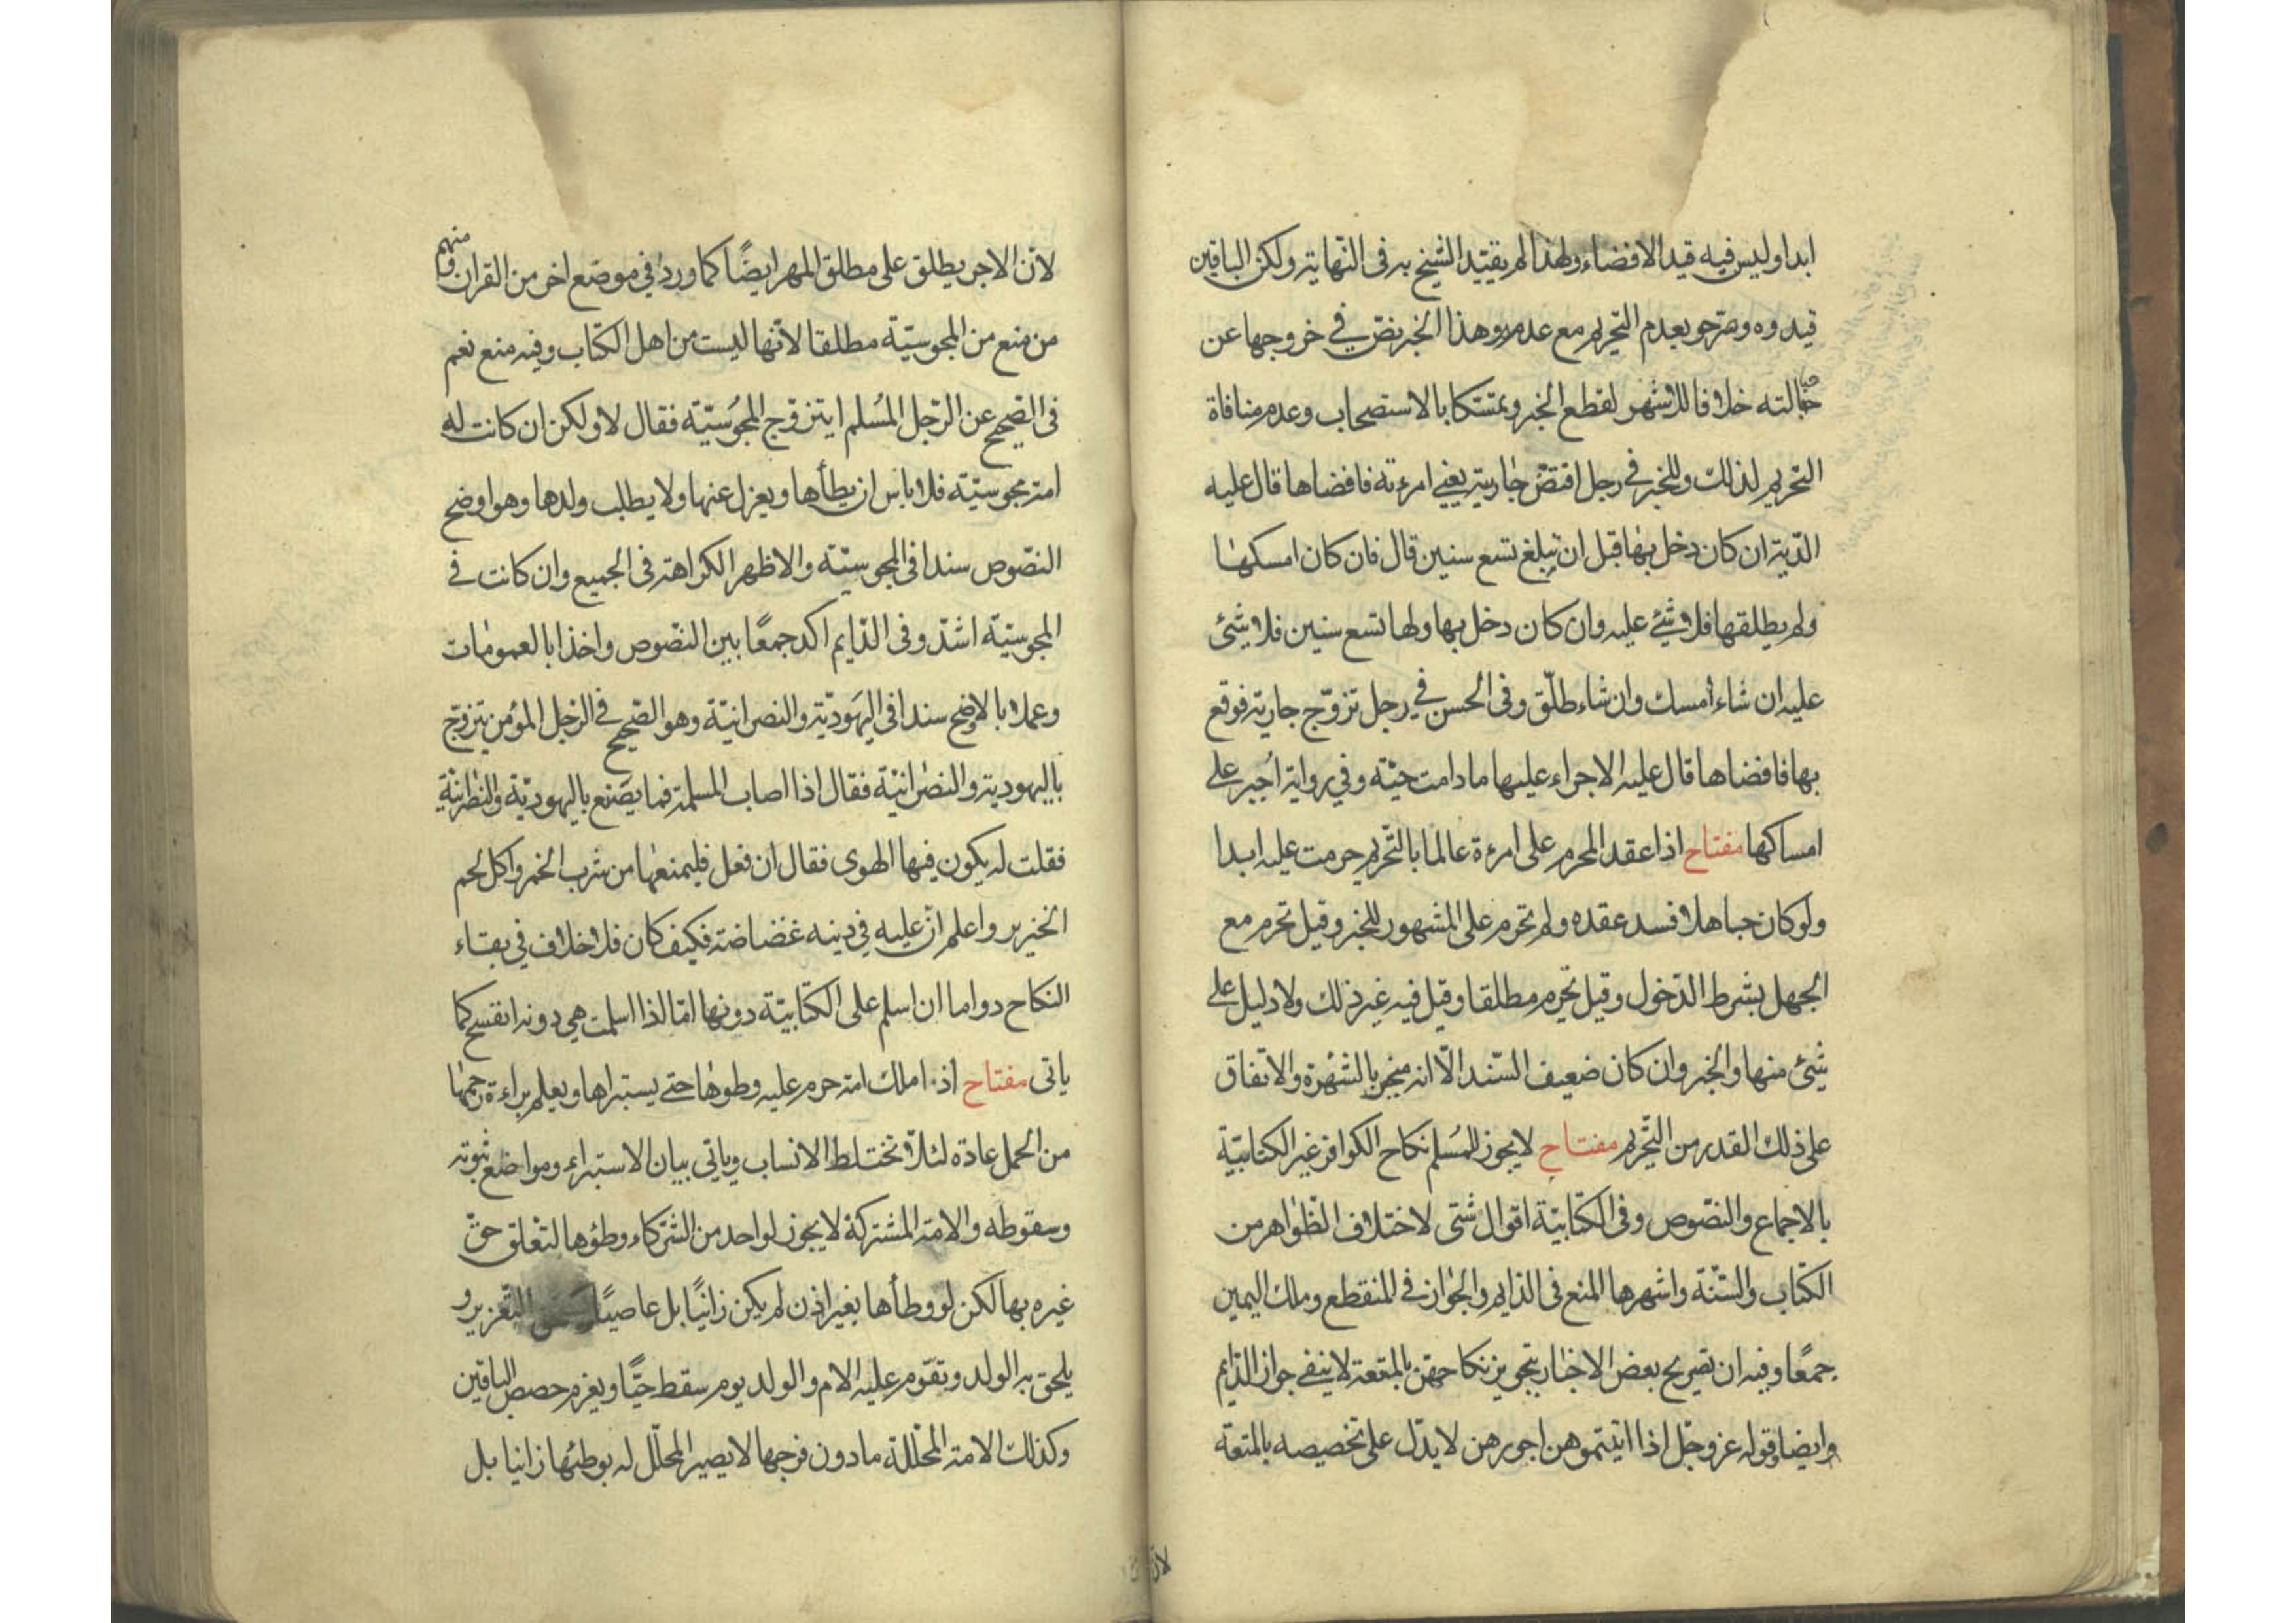 ابدا وليس فيه قيد الافضاء ولهذا لم يقيّد الشيخ به فى النّهاية ولكن الباقين
قيدوه وصرّحو بعدم التحريم مع عدمه وهذا الخبر نصّ في خروجها عن
حبالته خلافا للاشهر لقطع الخبر وتمسّكا بالاستصحاب وعدم منافاة
التحريم لذلك وللخبر في رجل افتضّ جارية يعني امرءته فافضاها قال عليه
الدّية ان كان دخل بها قبل ان تبلغ تسع سنين قال فان كان امسكها
ولم يطلقها فلا شئ عليه وان كان دخل بها ولها تسع سنين فلا شئ
عليه ان شاء امسك وان شاء طلّق وفى الحسن في رجل تزوّج جارية فوقع
بها فافضاها قال عليه الاجراء عليها ما دامت حيّة وفي رواية اُجبر على
امساكها مفتاح اذا عقد المحرم على امرءة عالما بالتّحريم حرمت عليه ابدا
ولو كان جاهلا فسد عقده ولم تحرم على المشهور للخبر وقيل تحرم مع
الجهل بشرط الدّخول وقيل تحرم مطلقا وقيل فيه غير ذلك ولا دليل على
شئ منها والخبر وان كان ضعيف السّند الّا انه منجبر بالشهرة والاتفاق
على ذلك القدر من التّحريم مفتاح لا يجوز للمُسلم نكاح الكوافر غير الكتابيّة
بالاجماع والنصّوص وفى الكتّابيّة اقوال شتى لاختلاف الظّواهر من
الكتّاب والسّنّة واشهرها المنع فى الدايم والجواز فى المنقطع وملك اليمين
جمعًا وفيه ان تصريح بعض الاخبار بتجويز نكاحهن بالمتعة لا ينفي جواز الدّايم
وايضا قوله عز وجّل اذا اتيتموهن اجورهن لا يدّل على تخصيصه بالمتعة
لانّ
لانّ الاجر يطلق على مطلق المهر ايضًا كما ورد في موضع اخر من القران ومنهم
من منع من المجوسيّة مطلقا لانّها ليست من اهل الكتّاب وفيه منع نعم
فى الصّحيح عن الرّجل المُسلم ايتزوّج المجُوسيّة فقال لا ولكن ان كانت له
امة مجوسيّة فلا باس ان يطأها ويعزل عنها ولا يطلب ولدها وهو اوضح
النصّوص سندا فى المجوسيّة والاظهر الكراهة فى الجميع وان كانت فى
المجوسيّة اشدّ وفى الدّايم اكد جمعًا بين النصّوص واخذا بالعمومات
وعملا بالاوضح سندا فى اليهوديّة والنصرانيّة وهو الصّحيح فى الرجل المؤمن يتزوّج
باليهودية والنصرانيّة فقال اذا اصاب المسلمة فما يصنع باليهوديّة والنصرانيّة
فقلت له يكون فيها الهوى فقال ان فعل فليمنعها من شرب الخمر واكل لحم
الخنزير واعلم ان عليه في دينه غضاضة فكيف كان فلا خلاف في بقاء
النكاح دواما ان اسلم على الكتّابيّة دونها امّا اذا اسلمت هي دونه انفسخ كما
ياتى مفتاح اذا املك امة حرم عليه وطوها حتے يستبراها ويعلم براءة رحمها
من الحمل عادة لئلّا تختلط الانساب وياتي بيان الاستبراء ومواضع ثبوته
وسقوطه والامة المشتركة لا يجوز لواحد من الشّركاء وطؤها لتعّلق حقّ
غيره بها لكن لو وطأها بغير اذن لم يكن زانيًا بل عاصيًا يستحق التّعزير و
يلحق به الولد وتقوّم عليه الام والولد يوم سقط حيًّا ويغرم حصص الباقين
وكذلك الامة المحلّلة ما دون فرجها لا يصير المحلّل له بوطئها زانيا بل